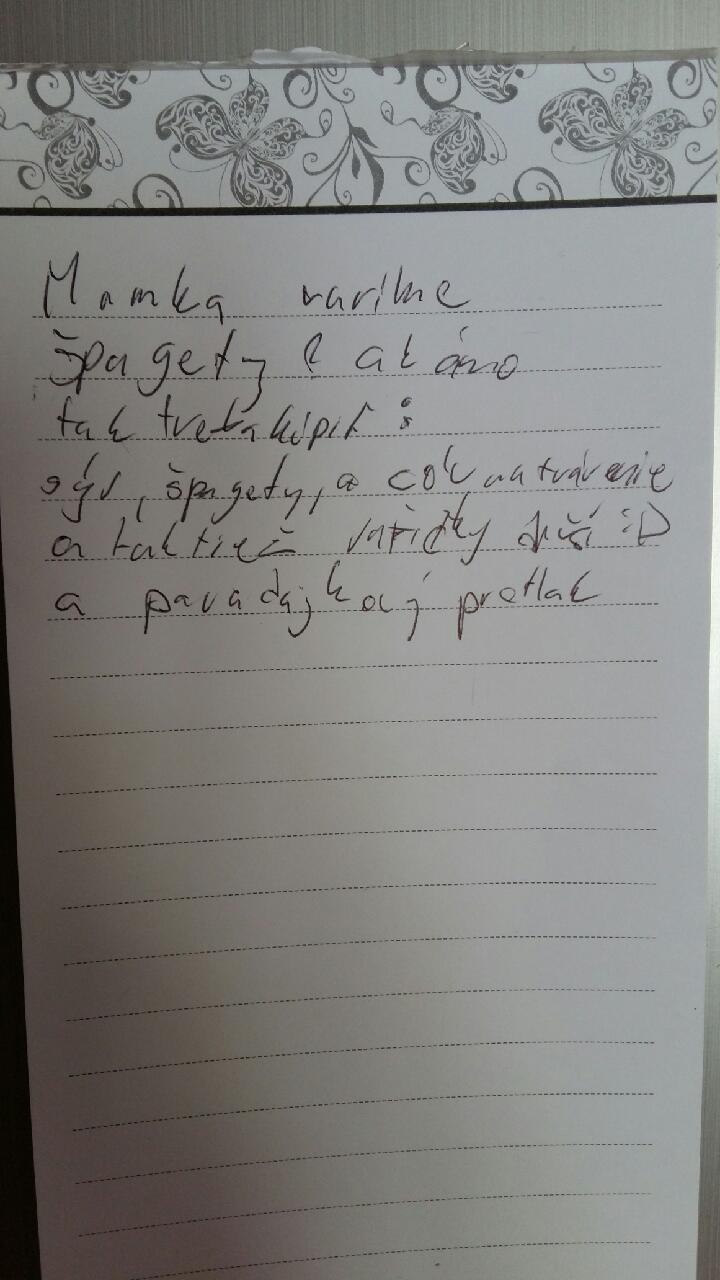 Mamka varíme
špagety ? ak áno
tak treba kúpiť :
sýr, špagety, a cok na tvárenie
a taktiež :D
a paradajkový pretlak